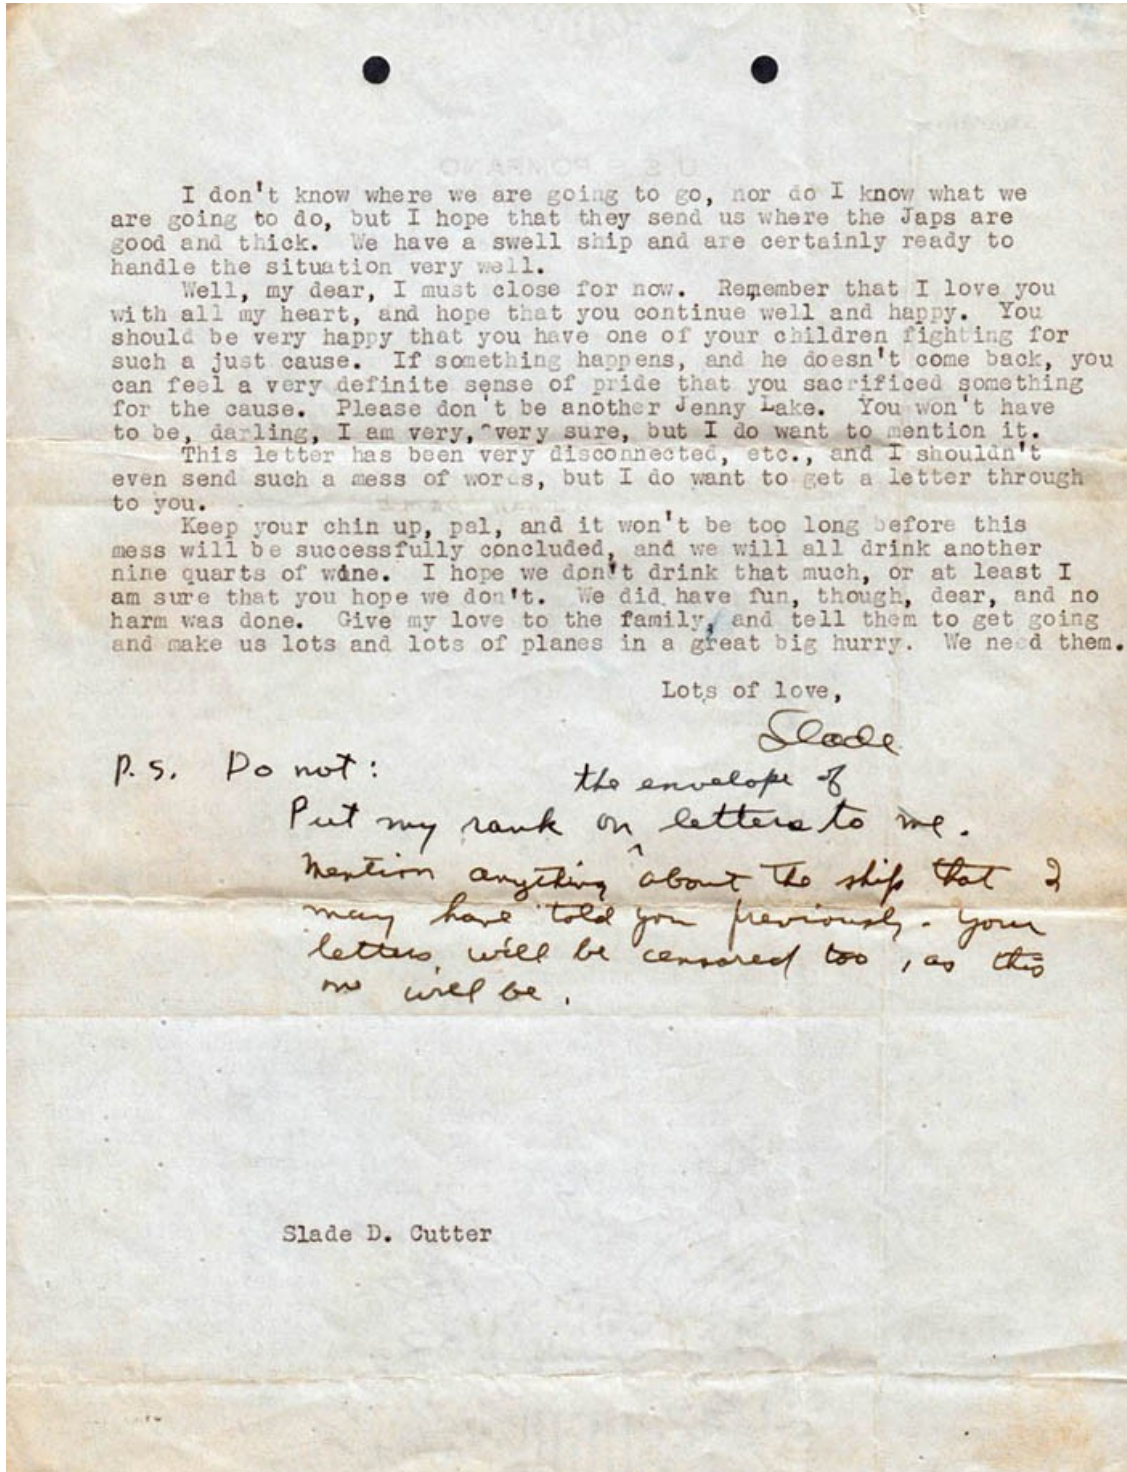 I don't know where we are going to go, nor do I know what we
are going to do, but I hope that they send us where the Japs are
good and thick. We have a swell ship and are certainly ready to
handle the situation very well.
Well, my dear, I must close for now. Remember that I love you
with all my heart, and hope that you continue well and happy. You
should be very happy that you have one of your children fighting for
such a just cause. If something happens, and he doesn't come back, you
can feel a very definite sense of pride that you sacrificed something
for the cause. Please don't be another Jenny Lake. You won't have
to be, darling, I am very, very sure, but I do want to mention it.
This letter has been very disconnected, etc., and I shouldn't
even send such a mess of words, but I do want to get a letter through
to you.
Keep your chin up, pal, and it won't be too long before this
mess will be successfully concluded, and we will all drink another
nine quarts of wine. I hope we don't drink that much, or at least I
am sure that you hope we don't. We did have fun, though, dear, and no
harm was done. Give my love to the family, and tell them to get going
and make us lots and lots of planes in a great big hurry. We need them.
Lots of love,
Slade
P.S. Do not:
the envelope of
Put my rank on ^ letters to me.
Mention anything about the ship that I
may have told you previously. Your
letters will be censored too, as this
one will be.
Slade D. Cutter